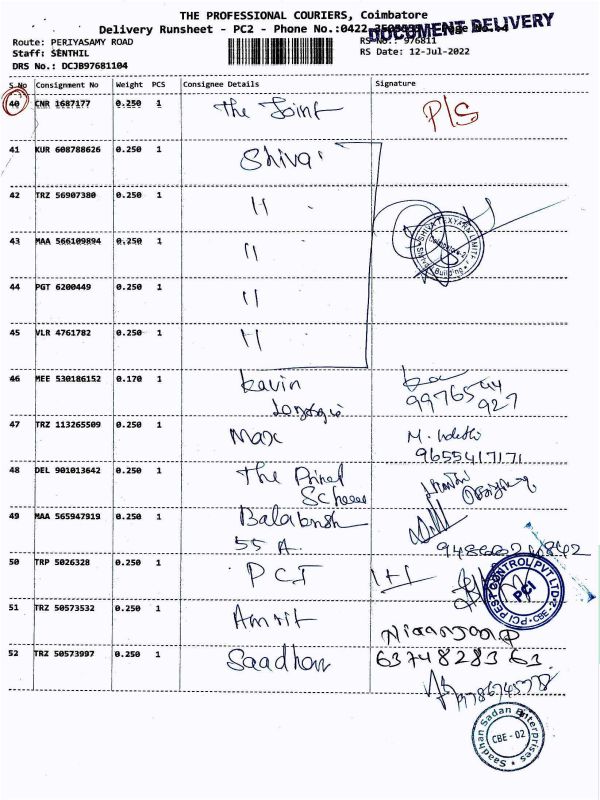 THE PROFESSIONAL COURIERS, Coimbatore
Delivery Runsheet - PC2 - Phone No.:0422
DOCUMENT DELIVERY
Route: PERIYASAMY ROAD
RS No.: 976811
Staff: SENTHIL
RS Date: 12-Jul-2022
DRS No.: DCJB97681104
S No Consignment No Weight PCS Consignee Details Signature
40 CNR 1687177 0.250 1 The Joint P/S
41 KUR 608788626 0.250 1 Shiva
42 TRZ 56907380 0.250 1 11
43 MAA 566109894 0.250 1 11
SHIVA TEXYARN LIMITED
Shiva Building
44 PGT 6200449 0.250 1 11
45 VLR 4761782 0.250 1 11
46 MEE 530186152 0.170 1 Kavin
9976544
927
47 TRZ 113265509 0.250 1 Max M.
9655417171
48 DEL 901013642 0.250 1 The
49 MAA 565947919 0.250 1
55 A.
50 TRP 5026328 0.250 1 PCI 1+1
PCI PEST CONTROL PVT LTD
PCI
CBE-2
51 TRZ 50573532 0.250 1 Amrit
52 TRZ 50573997 0.250 1 Saadhan 6374828363
9786745778
Saadhan Sadan Enterprises
CBE - 02